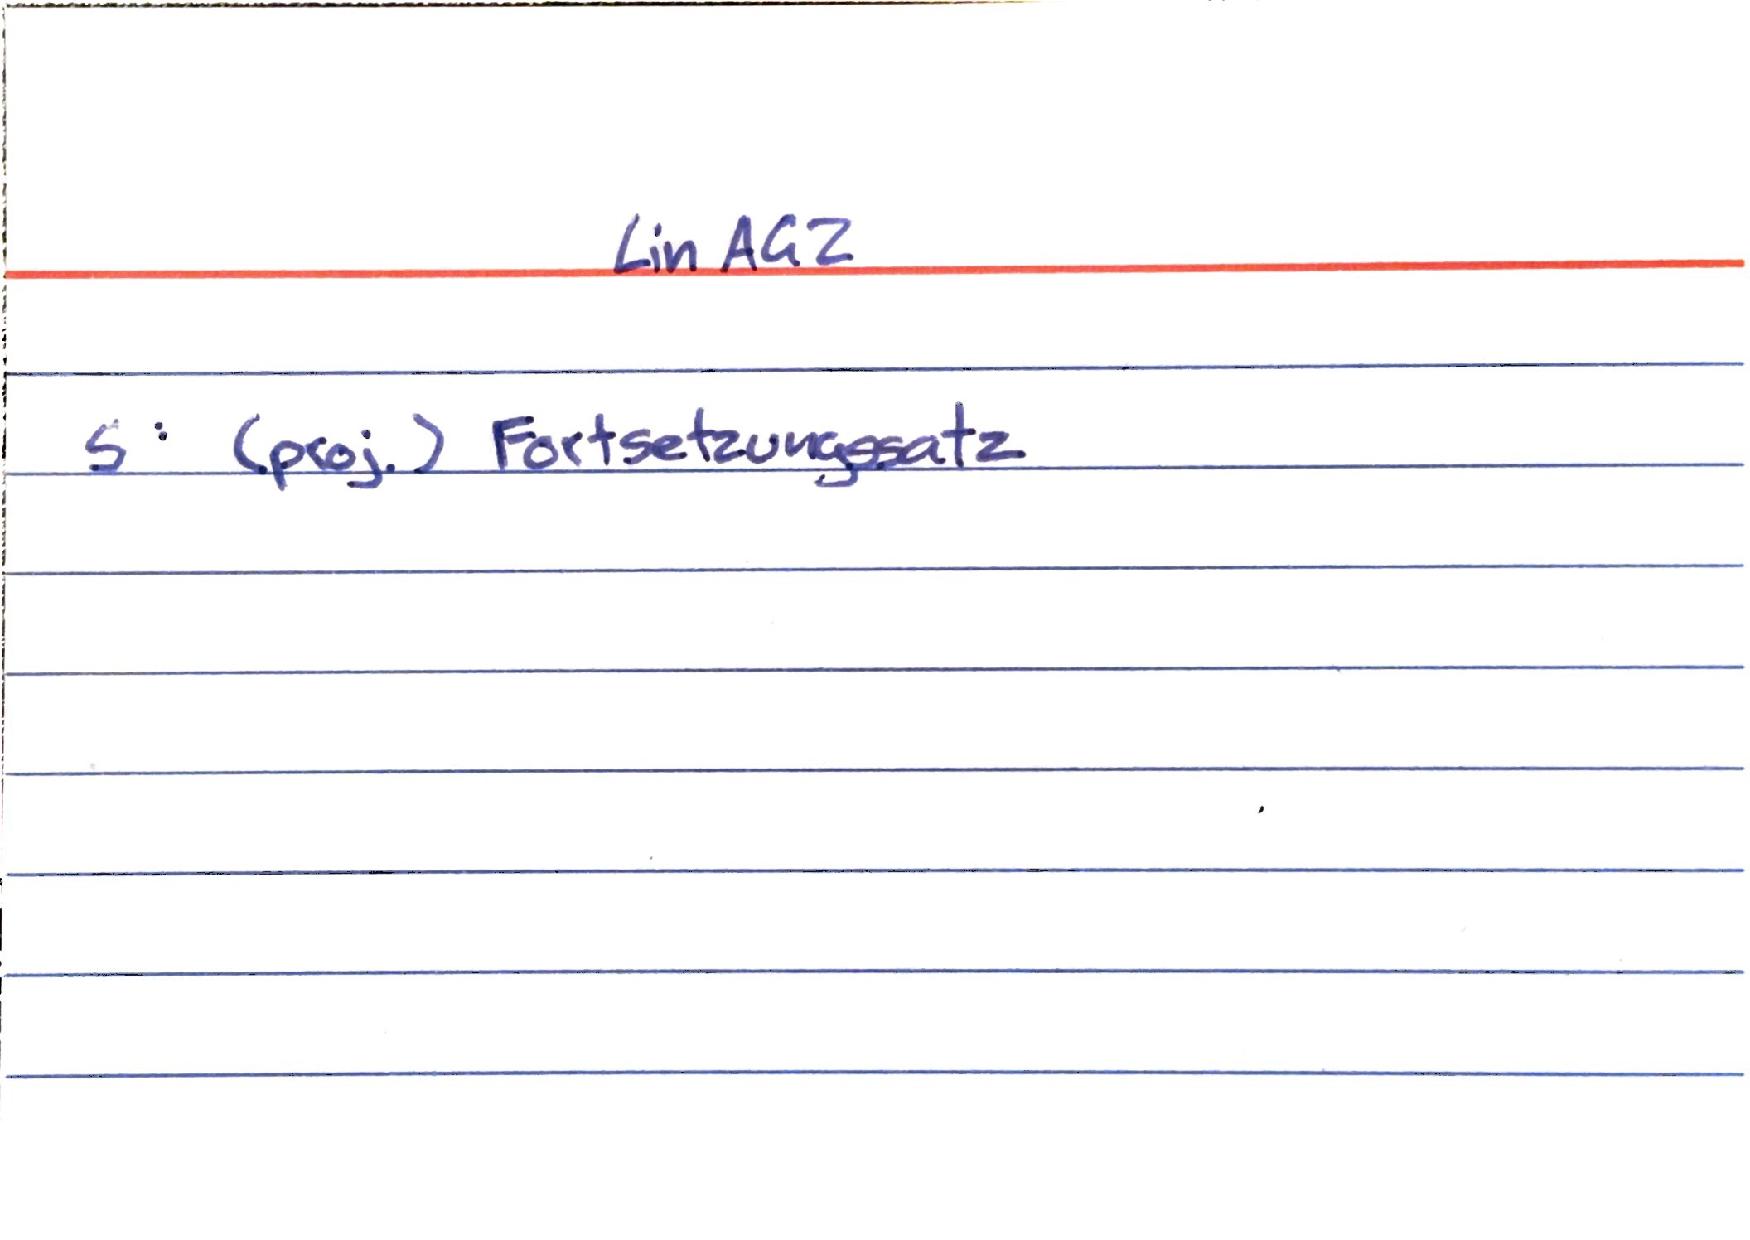 Lin AG2
S: (proj.) Fortsetzungssatz